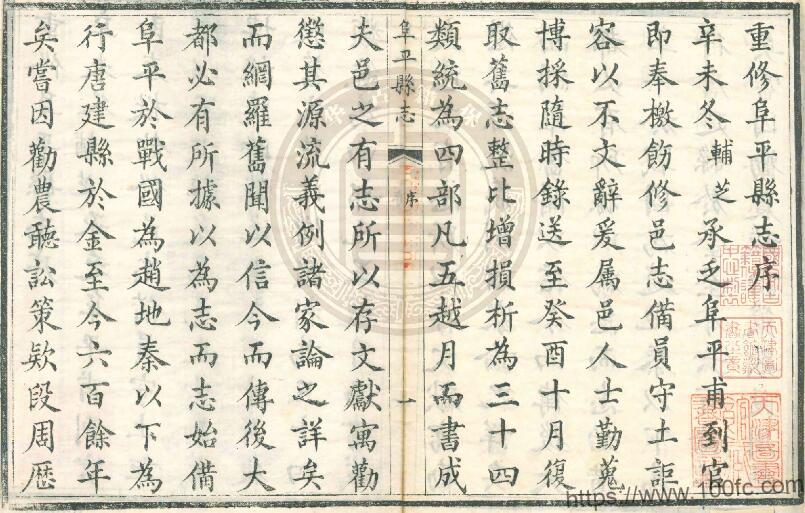 重修阜平縣志序
辛未冬輔芝承乏阜平甫到官
即奉檄飭修邑志備員守土詎
容以不文辭爰属邑人士勤蒐
博採隨時錄送至癸酉十月復
取舊志整比增損析為三十四
類統為四部凡五越月而書成
阜平縣志
序
一
夫邑之有志所以存文獻寓勸
懲其源流義例諸家論之詳矣
而網羅舊聞以信今而傳後大
都必有所據以為志而志始備
阜平於戰國為趙地秦以下為
行唐建縣於金至今六百餘年
矣嘗因勸農聽訟策欵段周歴
https://www.100fc.com